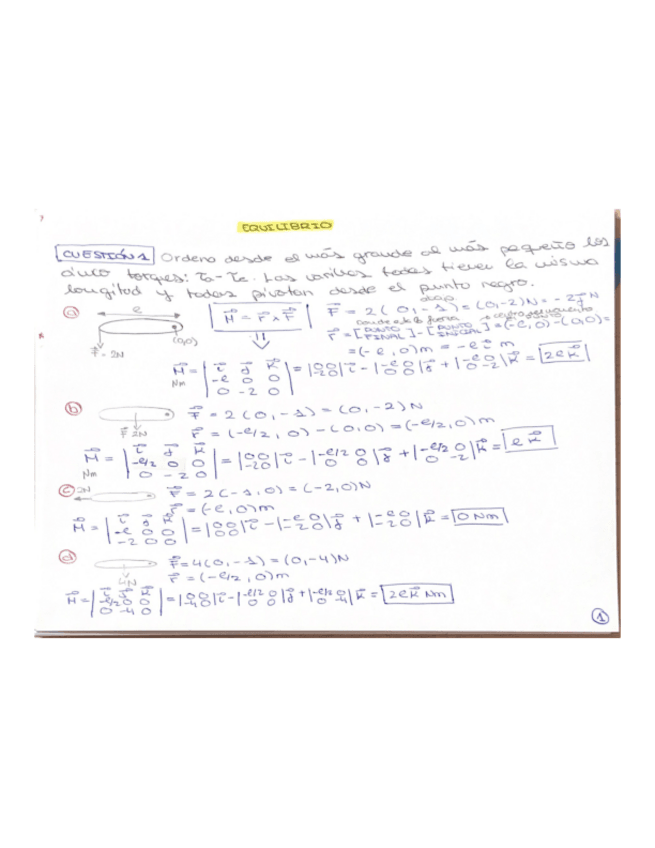 EQUILIBRIO
CUESTIÓN 1 Ordena desde el más grande al más pequeño los
cinco torques: τa - τe. Las varillas todas tienen la misma
longitud y todas pivotan desde el punto negro.
a) ℓ (0,0) F = 2N
M = r x F
F = 2(0,-1) = (0,-2)N = -2j N
abajo
r = [PUNTO FINAL] - [PUNTO INICIAL] = (-ℓ,0) - (0,0) =
= (-ℓ,0)m = -ℓ i m
M = |i j k; -ℓ 0 0; 0 -2 0| = |0 0; -2 0| i - |-ℓ 0; 0 0| j + |-ℓ 0; 0 -2| k = 2ℓk
Nm
b) F 2N F = 2(0,-1) = (0,-2)N
r = (-ℓ/2, 0) - (0,0) = (-ℓ/2, 0)m
M = |i j k; -ℓ/2 0 0; 0 -2 0| = |0 0; -2 0| i - |-ℓ/2 0; 0 0| j + |-ℓ/2 0; 0 -2| k = ℓk
Nm
c) 2N F = 2(-1,0) = (-2,0)N
r = (-ℓ,0)m
M = |i j k; -ℓ 0 0; -2 0 0| = |0 0; 0 0| i - |-ℓ 0; -2 0| j + |-ℓ 0; -2 0| k = 0 Nm
d) 4N F = 4(0,-1) = (0,-4)N
r = (-ℓ/2, 0)m
M = |i j k; -ℓ/2 0 0; 0 -4 0| = |0 0; -4 0| i - |-ℓ/2 0; 0 0| j + |-ℓ/2 0; 0 -4| k = 2ℓk Nm
1